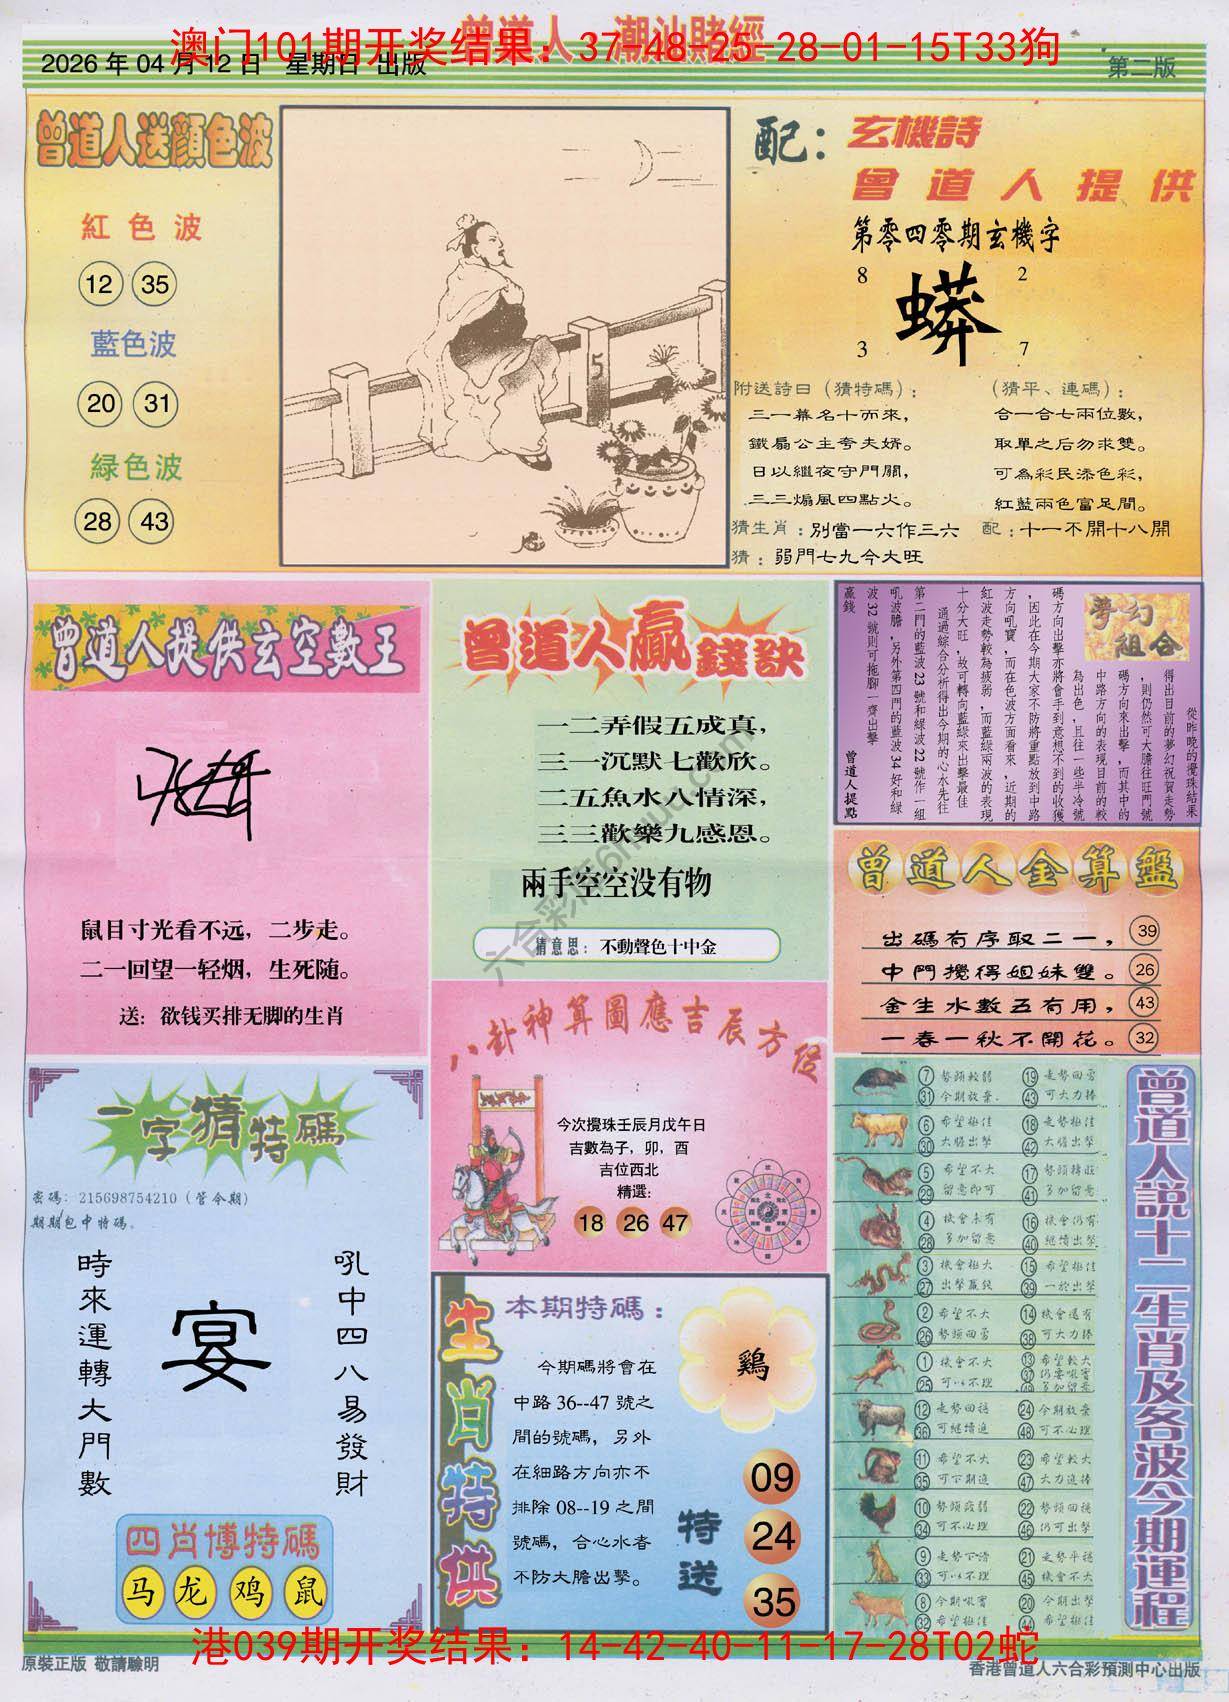 曾道人·潮汕賭經
澳门101期开奖结果：37-48-25-28-01-15T33狗
2026 年 04 月 12 日 星期日 出版
第二版
曾道人送顏色波
紅色波
12 35
藍色波
20 31
緑色波
28 43
5
配：玄機詩
曾道人提供
第零四零期玄機字
8 2
蟒
3 7
附送詩曰（猜特碼）：
三一幕名十而來，
鐵扇公主夸夫婿。
日以繼夜守門關，
三三煽風四點火。
（猜平、連碼）：
合一合七兩位數，
取單之后勿求雙。
可為彩民添色彩，
紅藍兩色富足間。
猜生肖：別當一六作三六 配：十一不開十八開
猜：弱門七九今大旺
曾道人提供玄空數王
鼠目寸光看不远，二步走。
二一回望一轻烟，生死随。
送：欲钱买排无脚的生肖
曾道人贏錢訣
一二弄假五成真，
三一沉默七歡欣。
二五魚水八情深，
三三歡樂九感恩。
兩手空空没有物
猜意思：不動聲色十中金
夢幻組合
從昨晚的攪珠結果
得出目前的夢幻祝賀走勢
，則仍然可大膽往旺門號
碼方向來出擊，而其中的
中路方向的表現目前的較
為出色，且往一些半冷號
碼方向出擊亦將會手到意想不到的收獲
，因此在今期大家不防將重點放到中路
方向吼寶，而在色波方面看來，近期的
紅波走勢較為疲弱，而藍綠兩波的表現
十分大旺，故可轉向藍綠來出擊最佳
通過綜合分析得出今期的心水先往
第二門的藍波23號和綠波22號作一組
吼波膽，另外第四門的藍波34好和綠
波32號則可拖腳一齊出擊
贏錢
曾道人提點
曾道人金算盤
出碼有序取二一， 39
中門攪得姐妹雙。 26
金生水數五有用， 43
一春一秋不開花。 32
八卦神算圖應吉辰方位
今次攪珠壬辰月戊午日
吉數為子，卯，酉
吉位西北
精選:
18 26 47
一字猜特碼
密碼：215698754210（管今期）
期期包中特碼。
時來運轉大門數
宴
吼中四八易發財
四肖博特碼
马 龙 鸡 鼠
生肖特供
本期特碼：
今期碼將會在
中路 36--47 號之
間的號碼，另外
在細路方向亦不
排除 08--19 之間
號碼，合心水者
不防大膽出擊。
鷄
特送
09
24
35
曾道人説十二生肖及各波今期運程
7 勢頭較弱 19 走勢回勇
31 今期放棄. 43 可大力捧
6 希望極佳 18 走勢極佳
30 大膽出擊 42 大膽出擊
5 希望不大 17 勢頭轉旺
29 留意即可 41 多加留意
4 機會未有 16 機會仍有
28 多加留意 40 繼續出擊
3 機會極大 15 希望極佳
27 出擊贏錢 39 一於出擊
2 希望不大 14 機會還有
26 勢頭回勇 38 可大力捧
1 機會不大 13 希望較大
25 可以不理 37 仍要吸實
49 多加留意
12 走勢回穩 24 今期放棄
36 可繼續追 48 可不必理
11 希望不大 23 希望較大
35 可下期追 47 大力追捧
10 勢頭疲弱 22 勢頭回穩
34 可不必理 46 仍可出擊
9 走勢下滑 21 走勢平穩
33 可以不理 45 機會不大
8 今期吸實 20 今期出擊
32 希望極佳 44 希望極佳
港039期开奖结果：14-42-40-11-17-28T02蛇
原裝正版 敬請驗明
香港曾道人六合彩預測中心出版